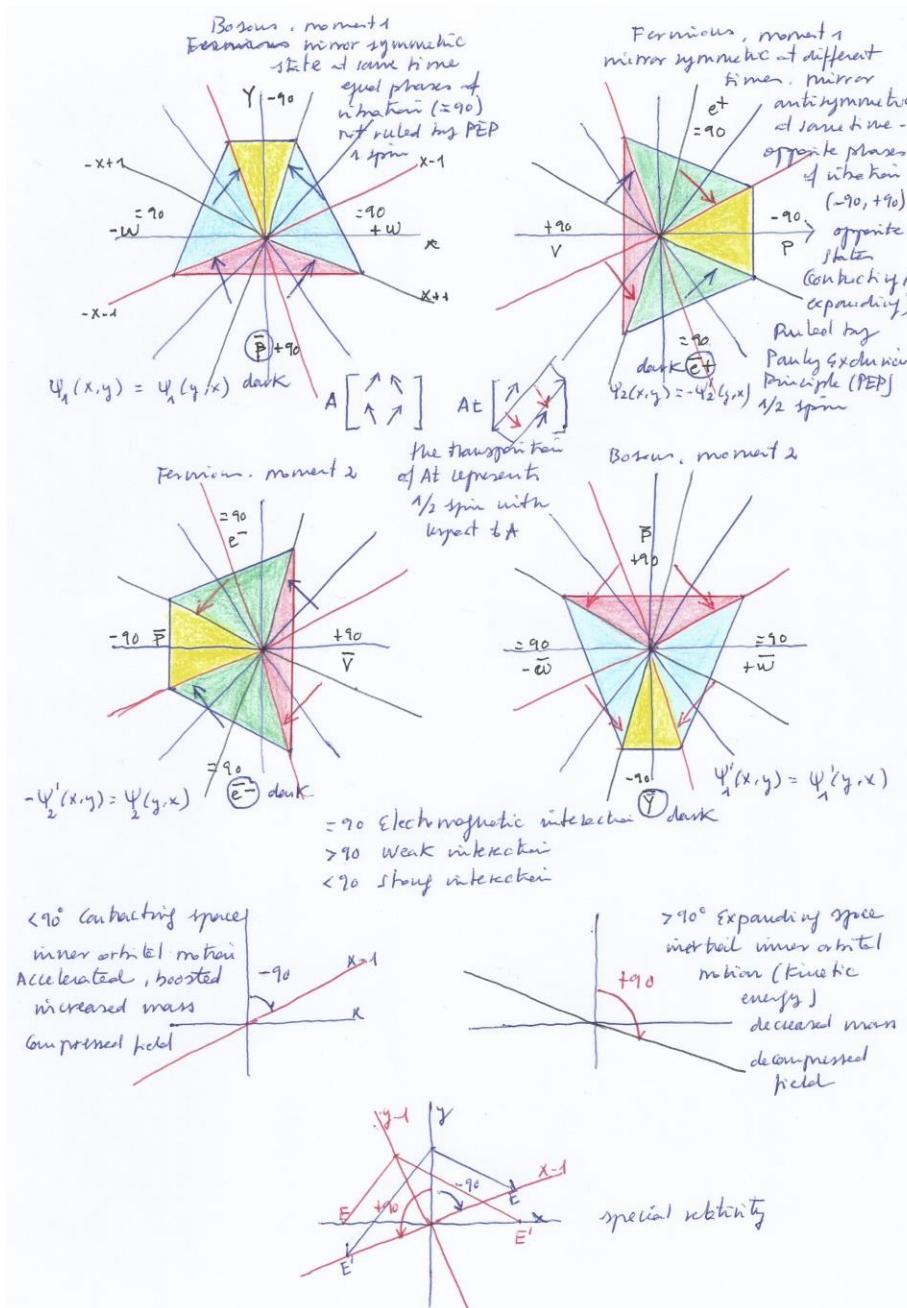 Bosons. moment 1
Fermions mirror symmetric
state at same time
equal phases of
vibration (=90)
not ruled by PEP
1 spin
Y -90
-x+1
x-1
=90
-W
=90
+W
x
-x-1
x+1
P̅ +90
dark
Ψ₁(x,y) = Ψ₁(y,x)
Fermions, moment 1
mirror symmetric at different
times. mirror
antisymmetric
at same time -
opposite phases
of vibration
(-90, +90)
opposite
states
(contracting/
expanding)
Ruled by
Pauly Exclusion
Principle (PEP)
1/2 spin
e+
=90
+90
V
-90
P
=90
dark e̅+
Ψ2(x,y)=-Ψ'2(y,x)
A
At
the transposition
of At represents
1/2 spin with
respect to A
Fermions. moment 2
=90
e-
-90 P̅
+90
V̅
=90
e̅- dark
-Ψ'₂(x,y) = Ψ₂(y,x)
Bosons. moment 2
P̅
+90
=90
-W̅
=90
+W̅
-90
Y̅
dark
Ψ'₁(x,y) = Ψ'₁(y,x)
=90 Electromagnetic interaction
>90 Weak interaction
<90 Strong interaction
<90° Contracting space
inner orbital motion
Accelerated, boosted
increased mass
Compressed field
-90
x-1
x
>90° Expanding space
inertial inner orbital
motion (kinetic
energy)
decreased mass
decompressed
field
+90
y-1
y
x-1
E
+90
-90
E
x
E'
E'
special relativity